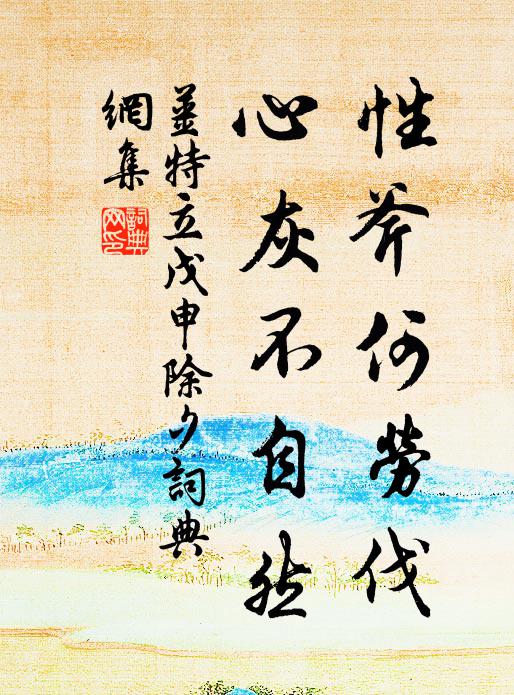 性斧何勞伐
心灰不自然
姜特立戊申除夕詞典
網集
詞典网印